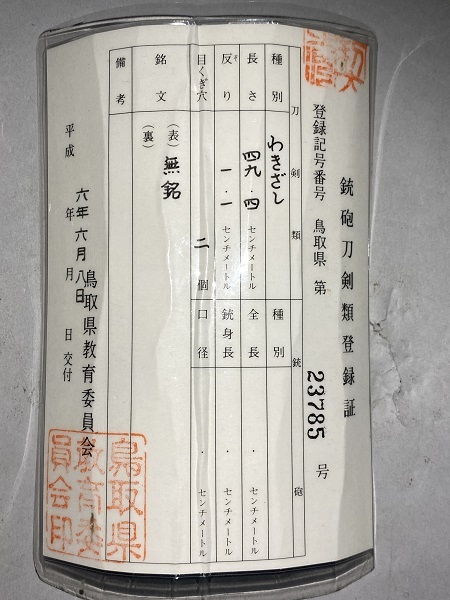 銃砲刀剣類登録証
登録記号番号 鳥取県 第 23785 号
刀剣類 銃砲
種別 わきざし 種別
長さ 四九・四 センチメートル 全長 ・ センチメートル
反り 一・一 センチメートル 銃身長 ・ センチメートル
目くぎ穴 二 個 口径 ・ センチメートル
銘文 (表) 無銘
(裏)
備考
平成 六年六月八日
年 月 日交付
鳥取県教育委員会
鳥取県
教育委
員会印